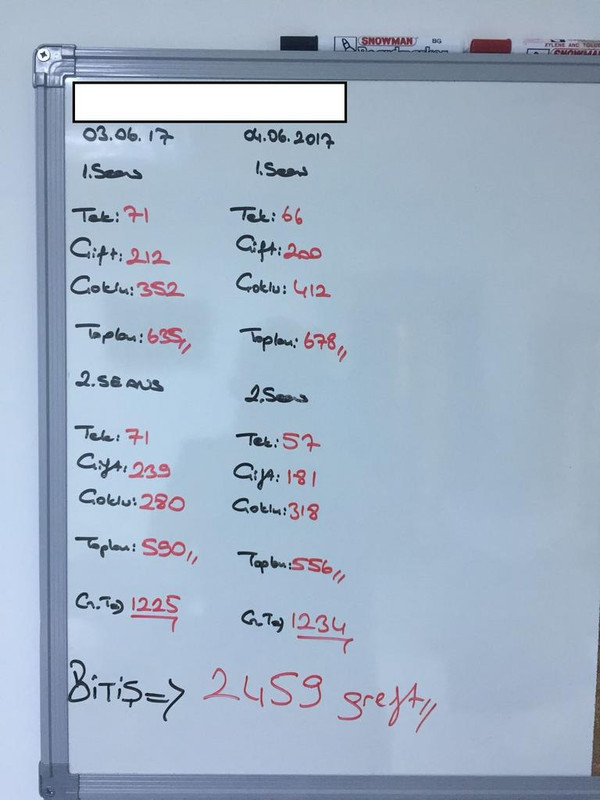 SNOWMAN BG
XYLENE AND TOLUE
SNOWMA
03.06.17
1.Seans
Tek: 71
Çift: 212
Çoklu: 352
Toplam: 635//
2.SEANS
Tek: 71
Çift: 239
Çoklu: 280
Toplam: 590//
G.Top 1225
04.06.2017
1.Seans
Tek: 66
Çift: 200
Çoklu: 412
Toplam: 678//
2.Seans
Tek: 57
Çift: 181
Çoklu: 318
Toplam: 556//
G.Top 1234
BİTİŞ=> 2459 greft//